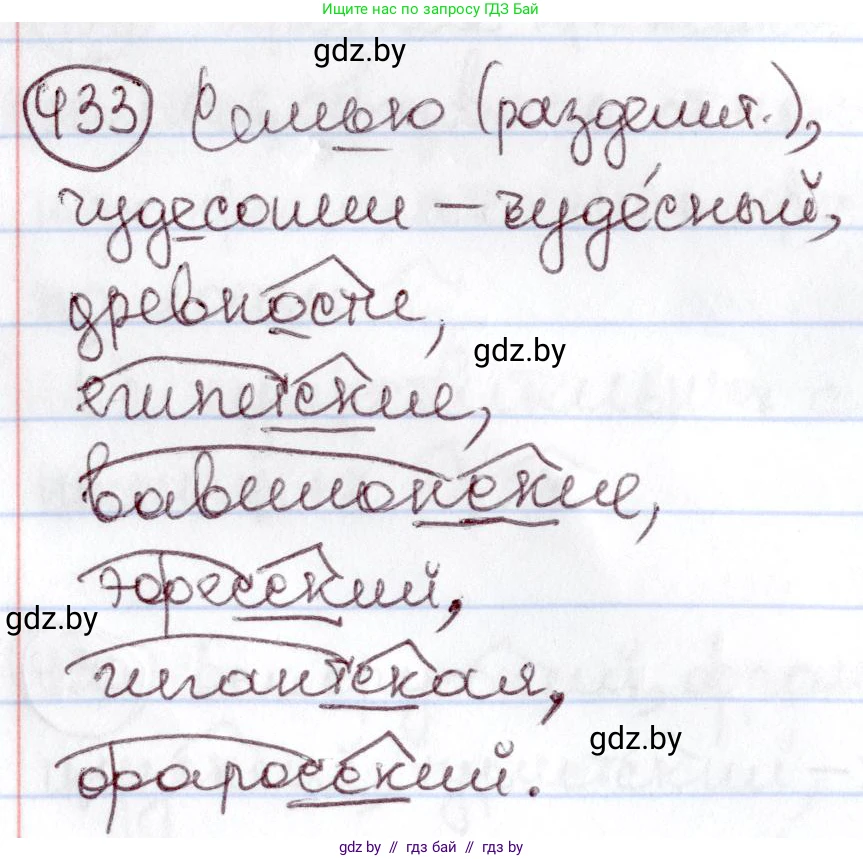 Ищите нас по запросу ГДЗ Бай
gdz.by
433 Семью (разделит.),
чудесами – чуде́сный,
древности,
gdz.by
египетские,
вавилонские,
эфесский,
gdz.by
гигантская,
gdz.by
фаросский.
gdz.by // гдз бай // gdz.by